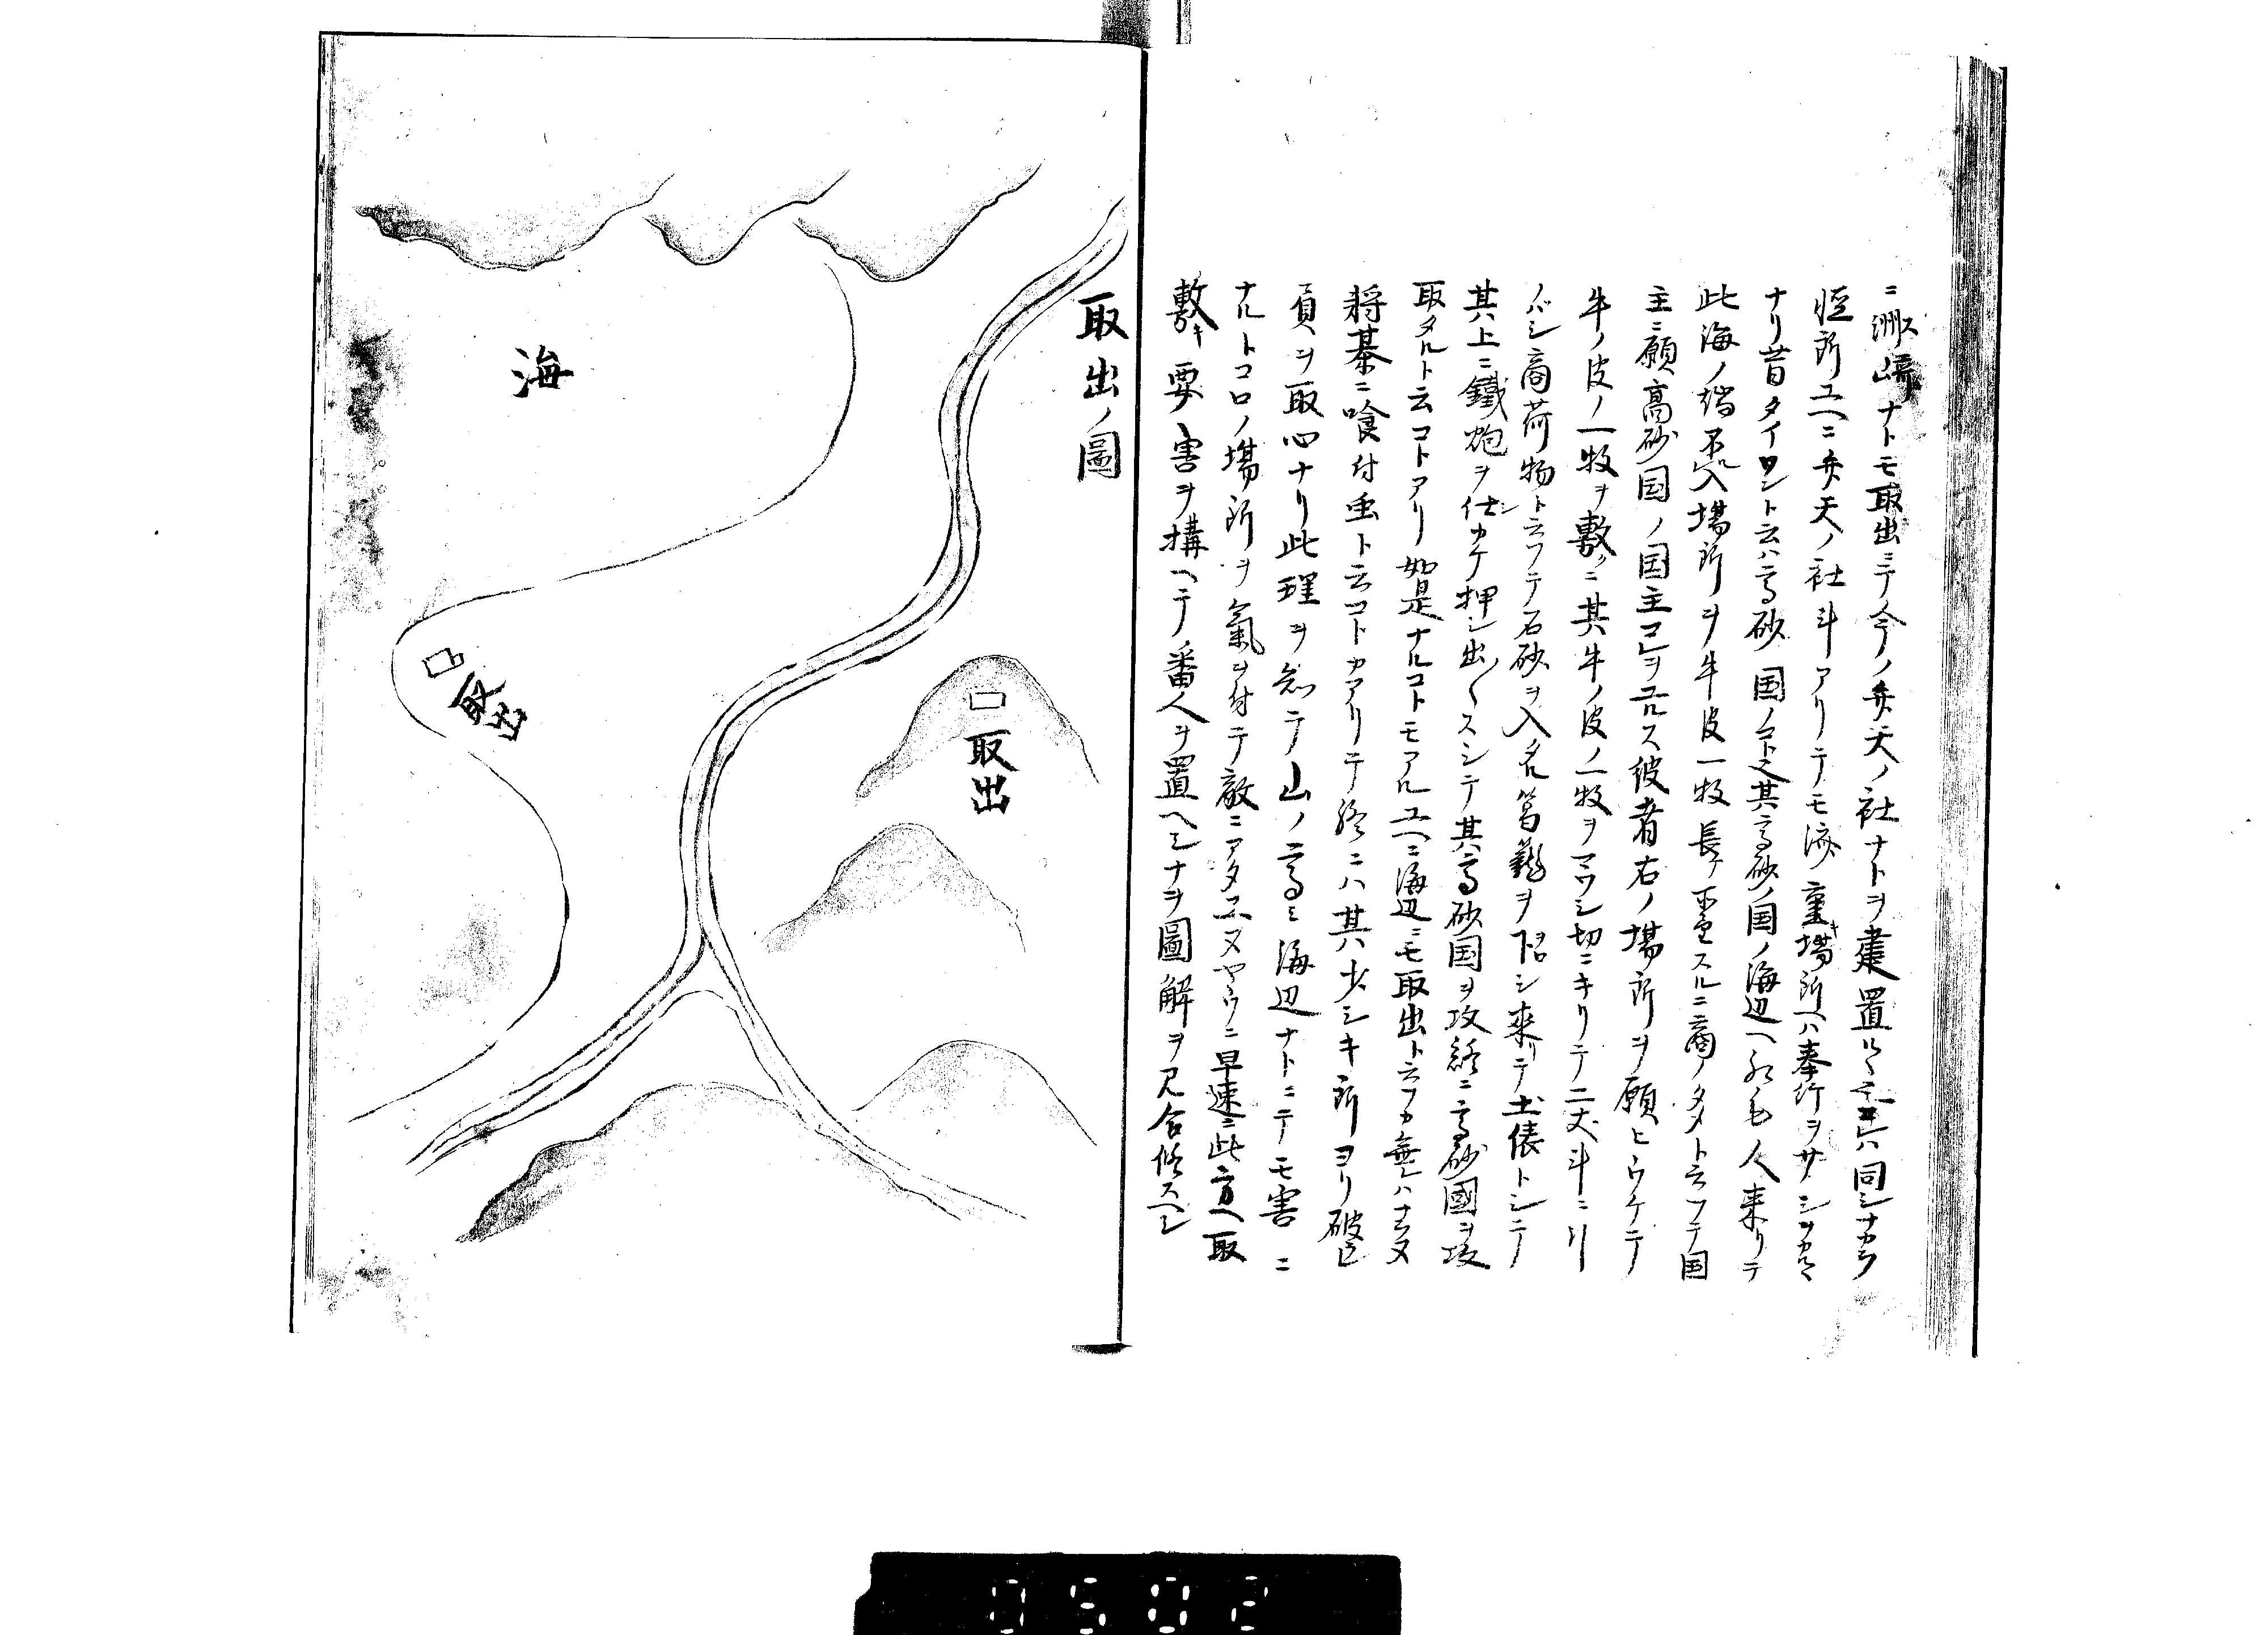 ニ洲崎ナトモ取出ニテ今ノ弁天ノ社ナトヲ建置ル
所ユヘニ弁天ノ社斗アリテモ済重場所ヘハ奉行ヲサシヲカル
ナリ昔タイワント云ハ高砂国ノコト其高砂ノ国ノ海辺ヘ紅毛人来リテ
此海ノ端不入場所ヲ牛皮一牧長ケ所望スルニ商ノタメト云フテ国
主ニ願高砂国ノ国主コレヲユルス彼者右ノ場所ヲ願ヒウケテ
牛ノ皮ノ一牧ヲ敷クニ其牛ノ皮ノ一牧ヲマワシ切ニキリテ二丈斗ニ
ノバシ商荷物ト云フテ石砂ヲ入タル葛籠ヲヲロシ来リテ土俵トシテ
其上ニ鐵炮ヲ仕カケ押シ出シ〱スシテ其高砂国ヲ攻終ニ高砂國ヲ攻
取タルト云コトアリ如是ナルコトモアルユヘニ海辺ニモ取出ト云フカ無レハナラヌ
将棊ニ喰付虫ト云コトカアリテ終ニハ其少シキ所ヨリ破
負ヲ取心ナリ此理ヲ知テ山ノ高ミ海辺ナトニテモ害ニ
ナルトコロノ場所ヲ氣ヲ付テ敵ニアタエヌヤウニ早速ニ此方ヘ取
敷キ要害ヲ構ヘテ番人ヲ置ヘシナヲ圖解ヲ見合修スヘシ
取出ノ圖
海
取出
取出
0502